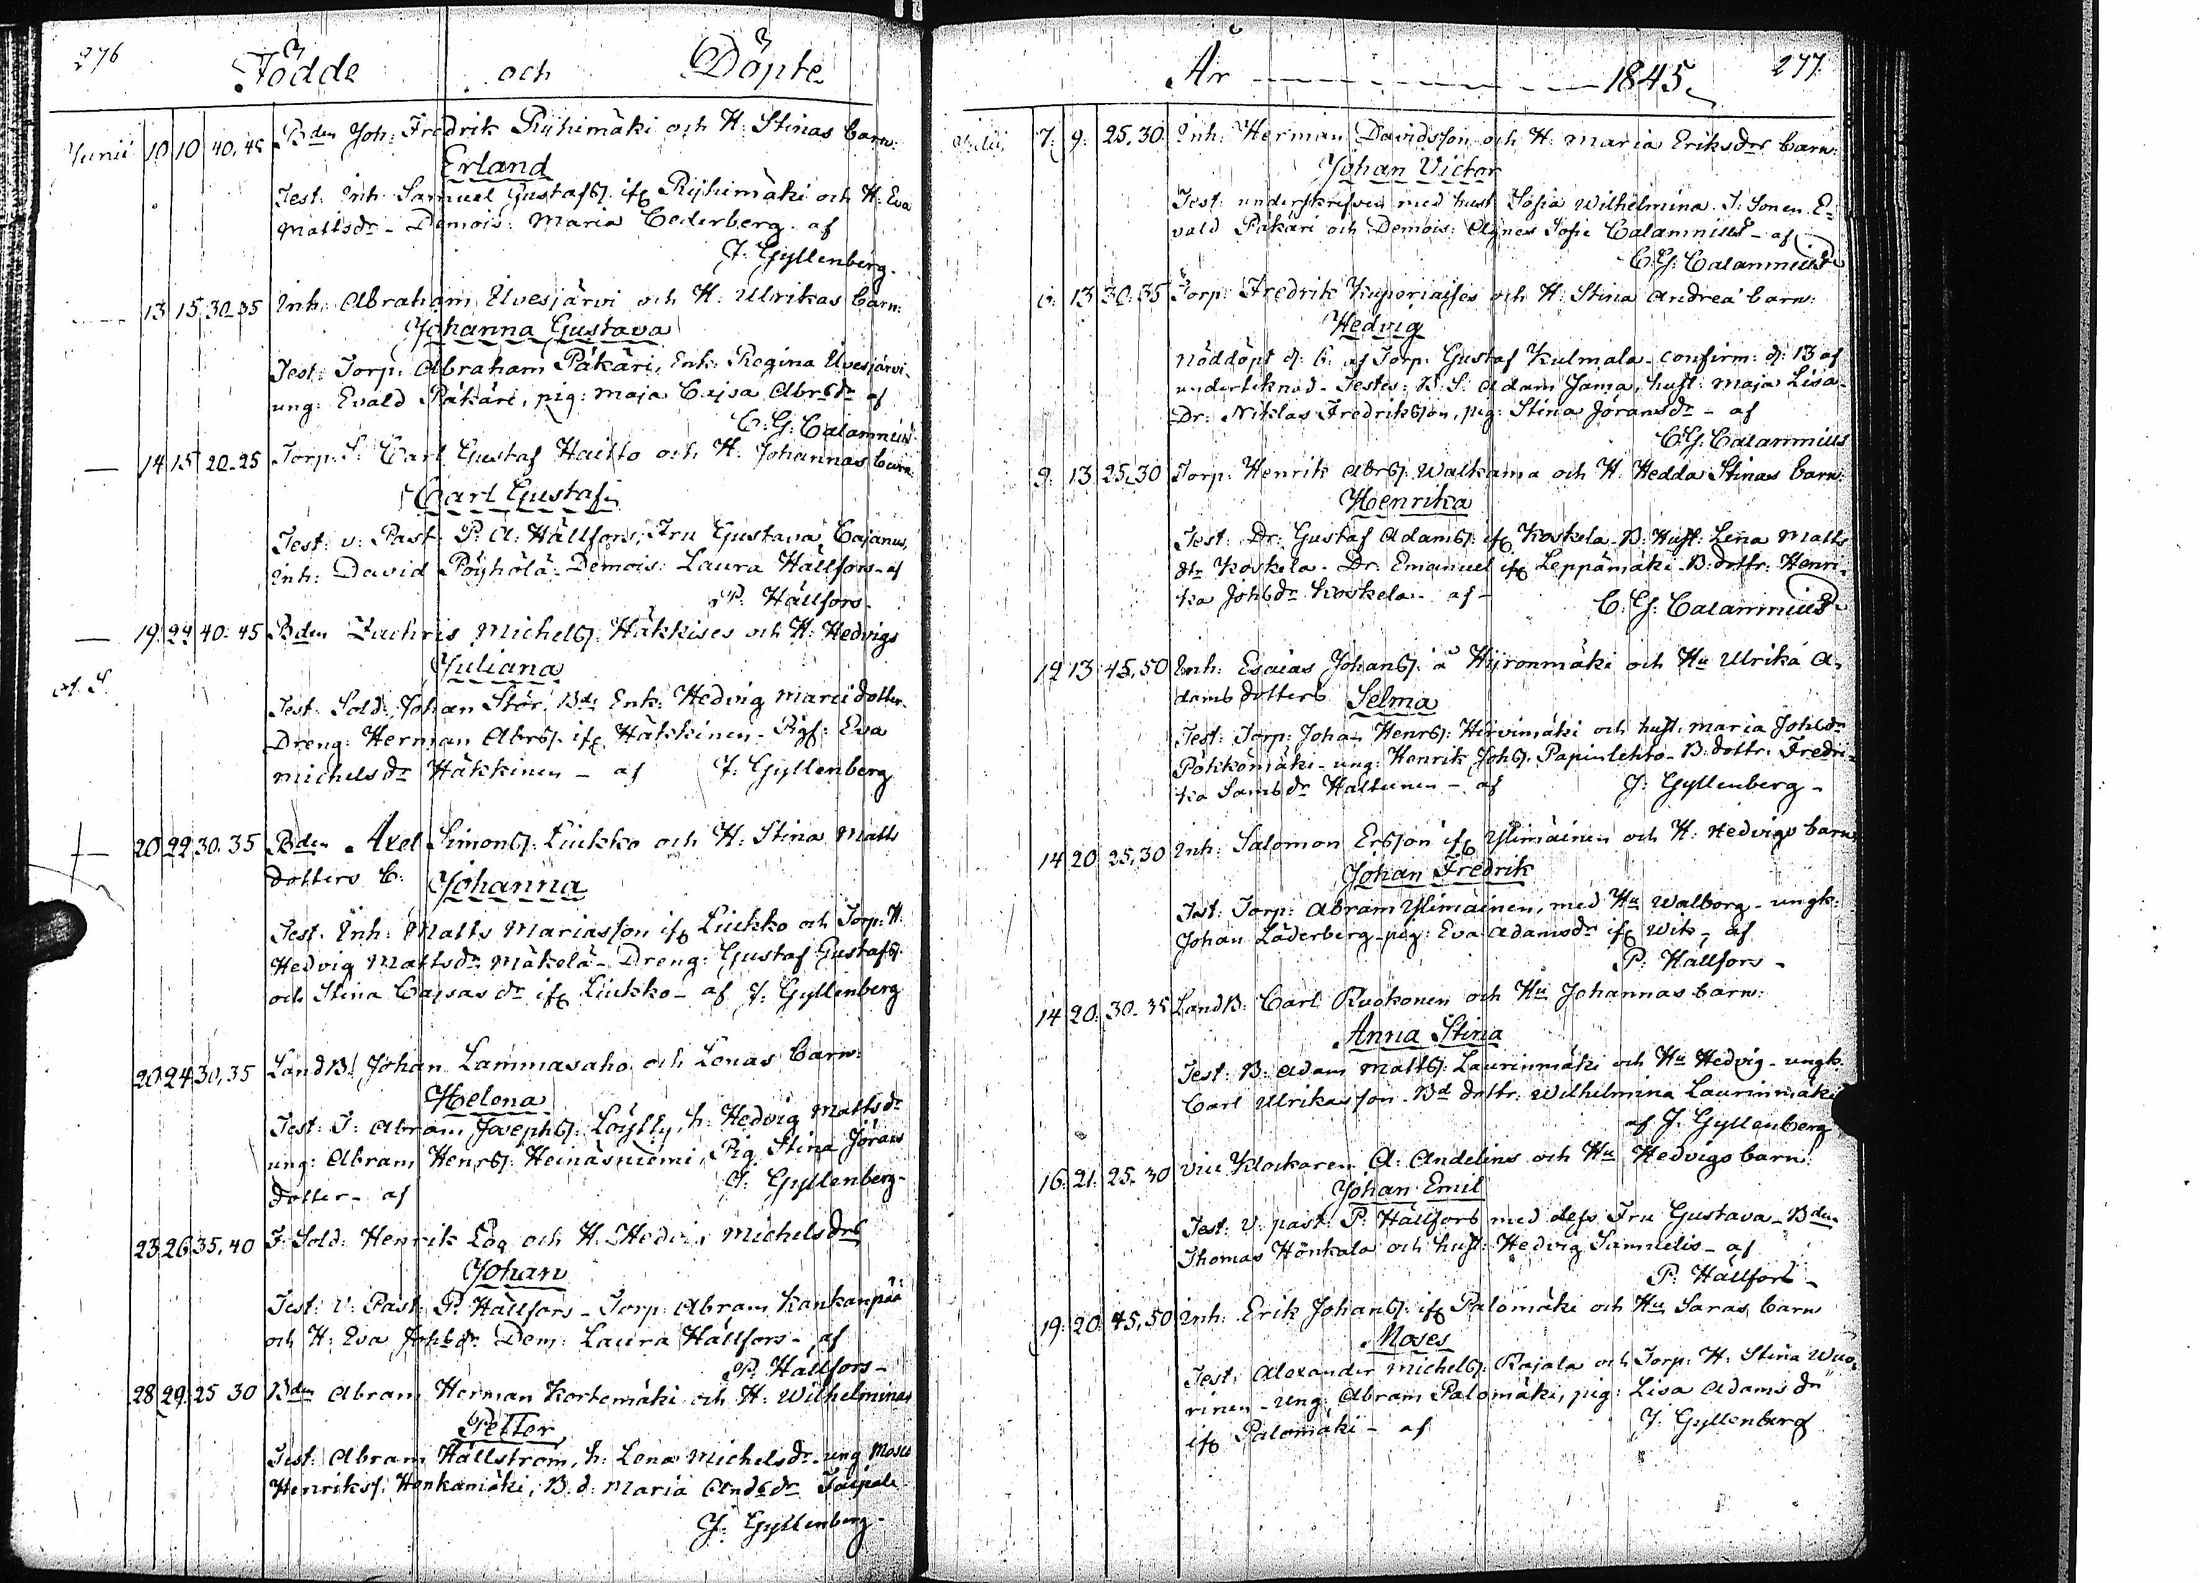 276 Födde och Döpte
Junii 10 10 40,45 Bden Joh: Fredrik Ryhimäki och H: Stinas barn:
Erland
Test. Inh. Samuel Gustafss. ifr. Ryhimäki och H: Eva
Mattsdr - Demois: Maria Cederberg. af
J: Gyllenberg.
13 15 30-35 Inh: Abraham Ulvesjärvi och H: Ulrikas barn:
Johanna Gustava
Test: Torp: Abraham Päkäri, Enk: Regina Ulvesjärvi-
ung: Evald Päkäri, pig: Maja Cajsa Abrsdr af
C: G: Calamnius
14 15 20-25 Torp: S: Carl Gustaf Haitto och H: Johannas barn:
Carl Gustaf
Test: v: Past: P: A: Hällfors, Fru Gustava Cajanus,
Inh: David Pöyhölä - Demois: Laura Hällfors - af
P: Hällfors.
19 24 40-45 Bden Zachris Michelss. Häkkises och H: Hedvigs
Juliana
Test: Sold: Johan Stör, Bds Enk: Hedvig Marci dotter.
Dreng: Herman Abrss. ifr. Häkkinen - Pigs: Eva
Michelsdr Häkkinen - af J: Gyllenberg
20 22 30-35 Bden Axel Simonss. Liukko och H: Stina Matts
dotters b: Johanna
Test. Inh: Matts Mariasson ifr Liukko och Torp: H:
Hedvig Mattsdr Mäkelä - Dreng: Gustaf Gustafss.
och Stina Cajsas dr ifr Liukko - af J: Gyllenberg
20 24 30,35 Land B: Johan Lammasaho och Lenas barn:
Helena
Test: T: Abram Josephss. Löylly, h: Hedvig Mattsdr
ung: Abram Henrss. Heinäsniemi, Pig Stina Jörans
dotter - af J: Gyllenberg-
23 26 35,40 F: Sold: Henrik Log och H: Hedvig Michelsdrs
Johan
Test: V: Past: P: Hällfors - Torp: Abram Kankanpää
och H: Eva Johsdr Dem: Laura Hällfors - af
P: Hällfors -
28 29 25 30 Bden Abram Herman Kortemäki och H: Wilhelminas
Petter
Test: Abram Hällström, h: Lena Michelsdr - ung Moses
Henrikss. Honkamäki, B. d. Maria Andsdr Taipale
J: Gyllenberg-
År 1845. 277.
Julii 7: 9: 25,30 Inh: Herman Davidsson och H: Maria Eriksdrs barn:
Johan Victor
Test: underskrifven med hust. Sofia Wilhelmina. T: Sonen E:
vald Päkäri och Demois: Agnes Sofie Calamnius - af
C: G: Calamnius
6: 13 30:35 Torp: Fredrik Kuporiaises och H: Stina Andreæ barn:
Hedvig
Nöddöpt d: 6: af Torp: Gustaf Kulmala - confirm: d: 13 af
undertecknad - Testes: B. S: Adam Jama, hust: Maja Lisa-
Dr: Niklas Fredriksson, pig: Stina Jöransdr - af
C: G: Calamnius
9: 13 25,30 Torp: Henrik Abrss. Walkama och H: Hedda Stinas barn:
Henrika
Test: Dr: Gustaf Adamss. ifr Koskela - B: Hust: Lena Matts
dtr Koskela - Dr. Emanuel ifr Leppämäki - B: dottr: Henri-
ka Johsdr Koskela - af - C: G: Calamnius
12 13 45,50 Inh: Esaias Johanss. å Hyronmäki och Hu Ulrika A-
dams dotters Selma
Test: Torp: Johan Henrss. Hirvimäki och hust. Maria Johsdr
Pökkömäki - ung: Henrik Johss. Papinlehto - B: dottr. Fredri-
ka Samsdr Haltunen - af J: Gyllenberg -
14 20 25,30 Inh: Salomon Ersson ifr Ylimäinen och H: Hedvigs barn
Johan Fredrik
Test: Torp: Abram Ylimäinen, med Hu Walborg - ungk:
Johan Läderberg - pig: Eva Adamsdr ifr Wik - af
P: Hällfors -
14 20: 30-35 Land B: Carl Ruokonen och Hu Johannas barn:
Anna Stina
Test: B: Adam Mattss. Laurinmäki och Hu Hedvig - ungk.
Carl Ulrikasson - Bd dottr. Wilhelmina Laurinmäki
af J: Gyllenberg
16: 21: 25-30 Vice Klockaren A: Andelins och Hu Hedvigs barn:
Johan Emil
Test: V: past: P: Hällfors med dess Fru Gustava - Bden
Thomas Hönkala och hust: Hedvig Samuelis - af
P: Hällfors -
19: 20: 45,50 Inh: Erik Johanss. ifr Palomäki och Hu Saras barn
Moses
Test: Alexander Michelss. Rajala och Torp: H: Stina Wuo-
rinen - ung: Abram Palomäki, pig: Lisa Adamsdr
ifr Palomäki - af J: Gyllenberg